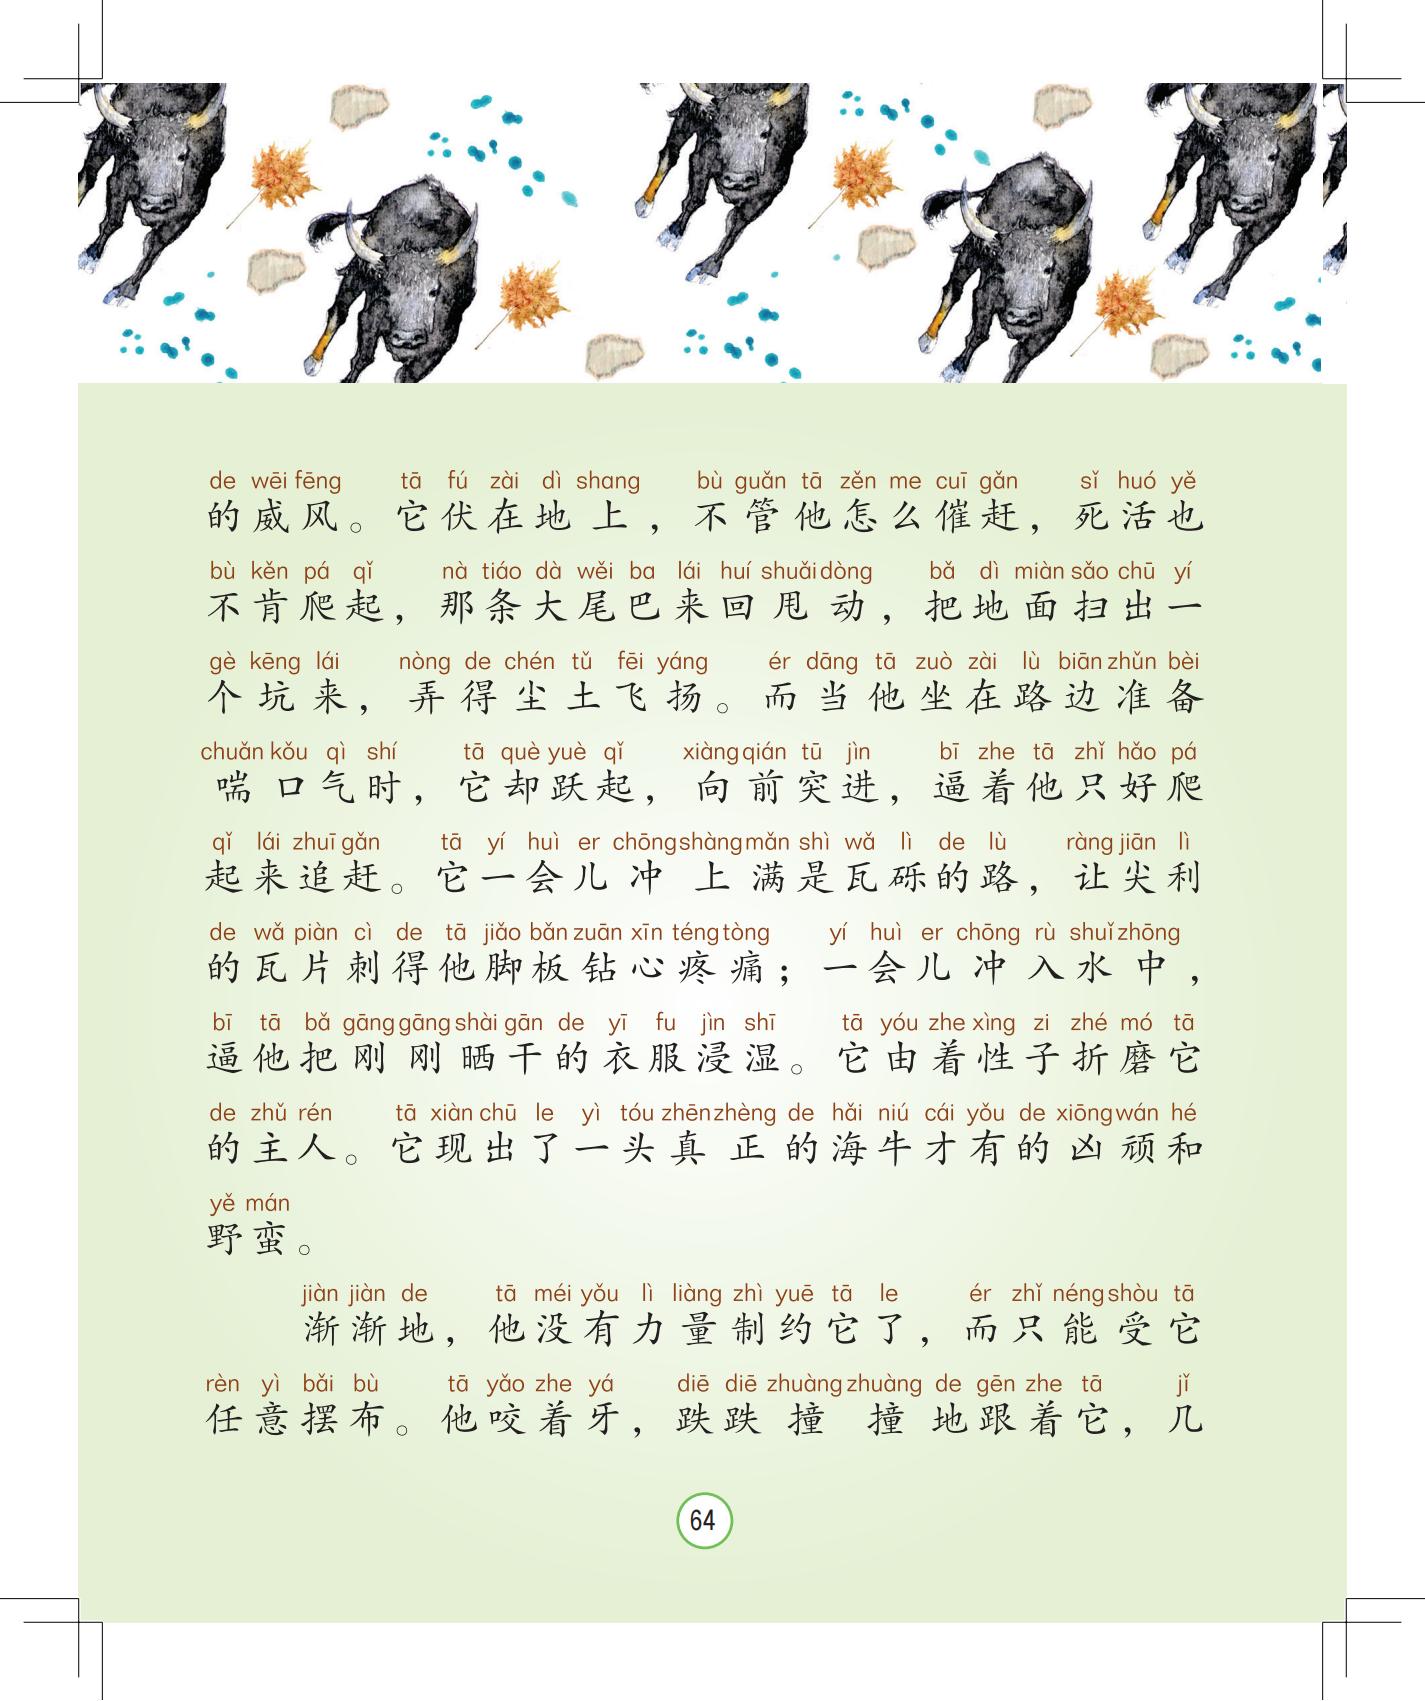 de wēi fēng tā fú zài dì shang bù guǎn tā zěn me cuī gǎn sǐ huó yě
的威风。它伏在地上，不管他怎么催赶，死活也
bù kěn pá qǐ nà tiáo dà wěi ba lái huí shuǎi dòng bǎ dì miàn sǎo chū yí
不肯爬起，那条大尾巴来回甩动，把地面扫出一
gè kēng lái nòng de chén tǔ fēi yáng ér dāng tā zuò zài lù biān zhǔn bèi
个坑来，弄得尘土飞扬。而当他坐在路边准备
chuǎn kǒu qì shí tā què yuè qǐ xiàng qián tū jìn bī zhe tā zhǐ hǎo pá
喘口气时，它却跃起，向前突进，逼着他只好爬
qǐ lái zhuī gǎn tā yí huì er chōng shàng mǎn shì wǎ lì de lù ràng jiān lì
起来追赶。它一会儿冲上满是瓦砾的路，让尖利
de wǎ piàn cì de tā jiǎo bǎn zuān xīn téng tòng yí huì er chōng rù shuǐ zhōng
的瓦片刺得他脚板钻心疼痛；一会儿冲入水中，
bī tā bǎ gāng gāng shài gān de yī fu jìn shī tā yóu zhe xìng zi zhé mó tā
逼他把刚刚晒干的衣服浸湿。它由着性子折磨它
de zhǔ rén tā xiàn chū le yì tóu zhēn zhèng de hǎi niú cái yǒu de xiōng wán hé
的主人。它现出了一头真正的海牛才有的凶顽和
yě mán
野蛮。
jiàn jiàn de tā méi yǒu lì liàng zhì yuē tā le ér zhǐ néng shòu tā
渐渐地，他没有力量制约它了，而只能受它
rèn yì bǎi bù tā yǎo zhe yá diē diē zhuàng zhuàng de gēn zhe tā jǐ
任意摆布。他咬着牙，跌跌撞撞地跟着它，几
64